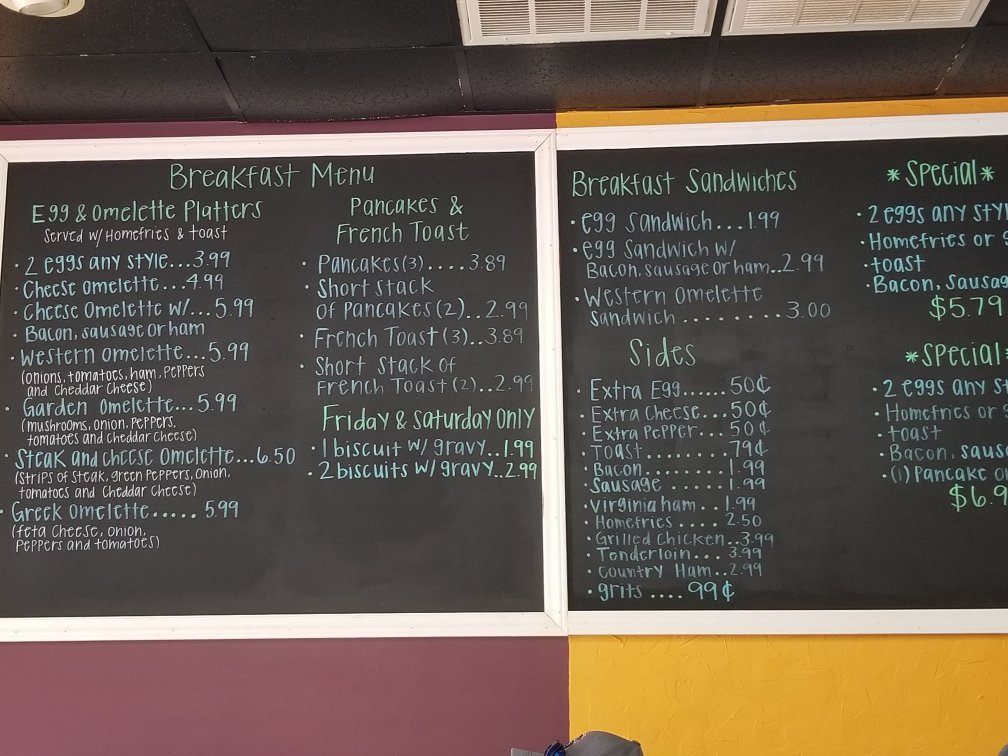 Breakfast Menu
Egg & Omelette Platters
Served w/ Homefries & toast
• 2 eggs any style...3.99
• Cheese omelette...4.99
• Cheese Omelette w/...5.99
• Bacon, sausage or ham
• Western omelette...5.99
(onions, tomatoes, ham, Peppers
and Cheddar Cheese)
• Garden Omelette...5.99
(mushrooms, onion, Peppers,
tomatoes and cheddar cheese)
• Steak and cheese Omelette...6.50
(strips of steak, green Peppers, onion,
tomatoes and Cheddar Cheese)
• Greek omelette..... 5.99
(feta cheese, onion,
Peppers and tomatoes)
Pancakes &
French Toast
• Pancakes(3)....3.89
• Short stack
of Pancakes(2)..2.99
• French Toast(3)..3.89
• Short Stack of
French Toast(2)..2.99
Friday & Saturday Only
• 1 biscuit w/ gravy..1.99
• 2 biscuits w/ gravy..2.99
Breakfast Sandwiches
• egg sandwich...1.99
• egg Sandwich w/
Bacon, sausage or ham..2.99
• Western Omelette
Sandwich ........ 3.00
Sides
• Extra Egg......50¢
• Extra Cheese...50¢
• Extra Pepper...50¢
• Toast........79¢
• Bacon.......1.99
• Sausage ......1.99
• Virginia ham..1.99
• Homefries....2.50
• Grilled Chicken..3.99
• Tenderloin... 3.99
• Country Ham..2.99
• grits ....99¢
*Special*
• 2 eggs any
• Homefries or
• toast
• Bacon,
$5.79
*Special
• 2 eggs any
• Homefries or
• toast
• Bacon,
• (1) Pancake